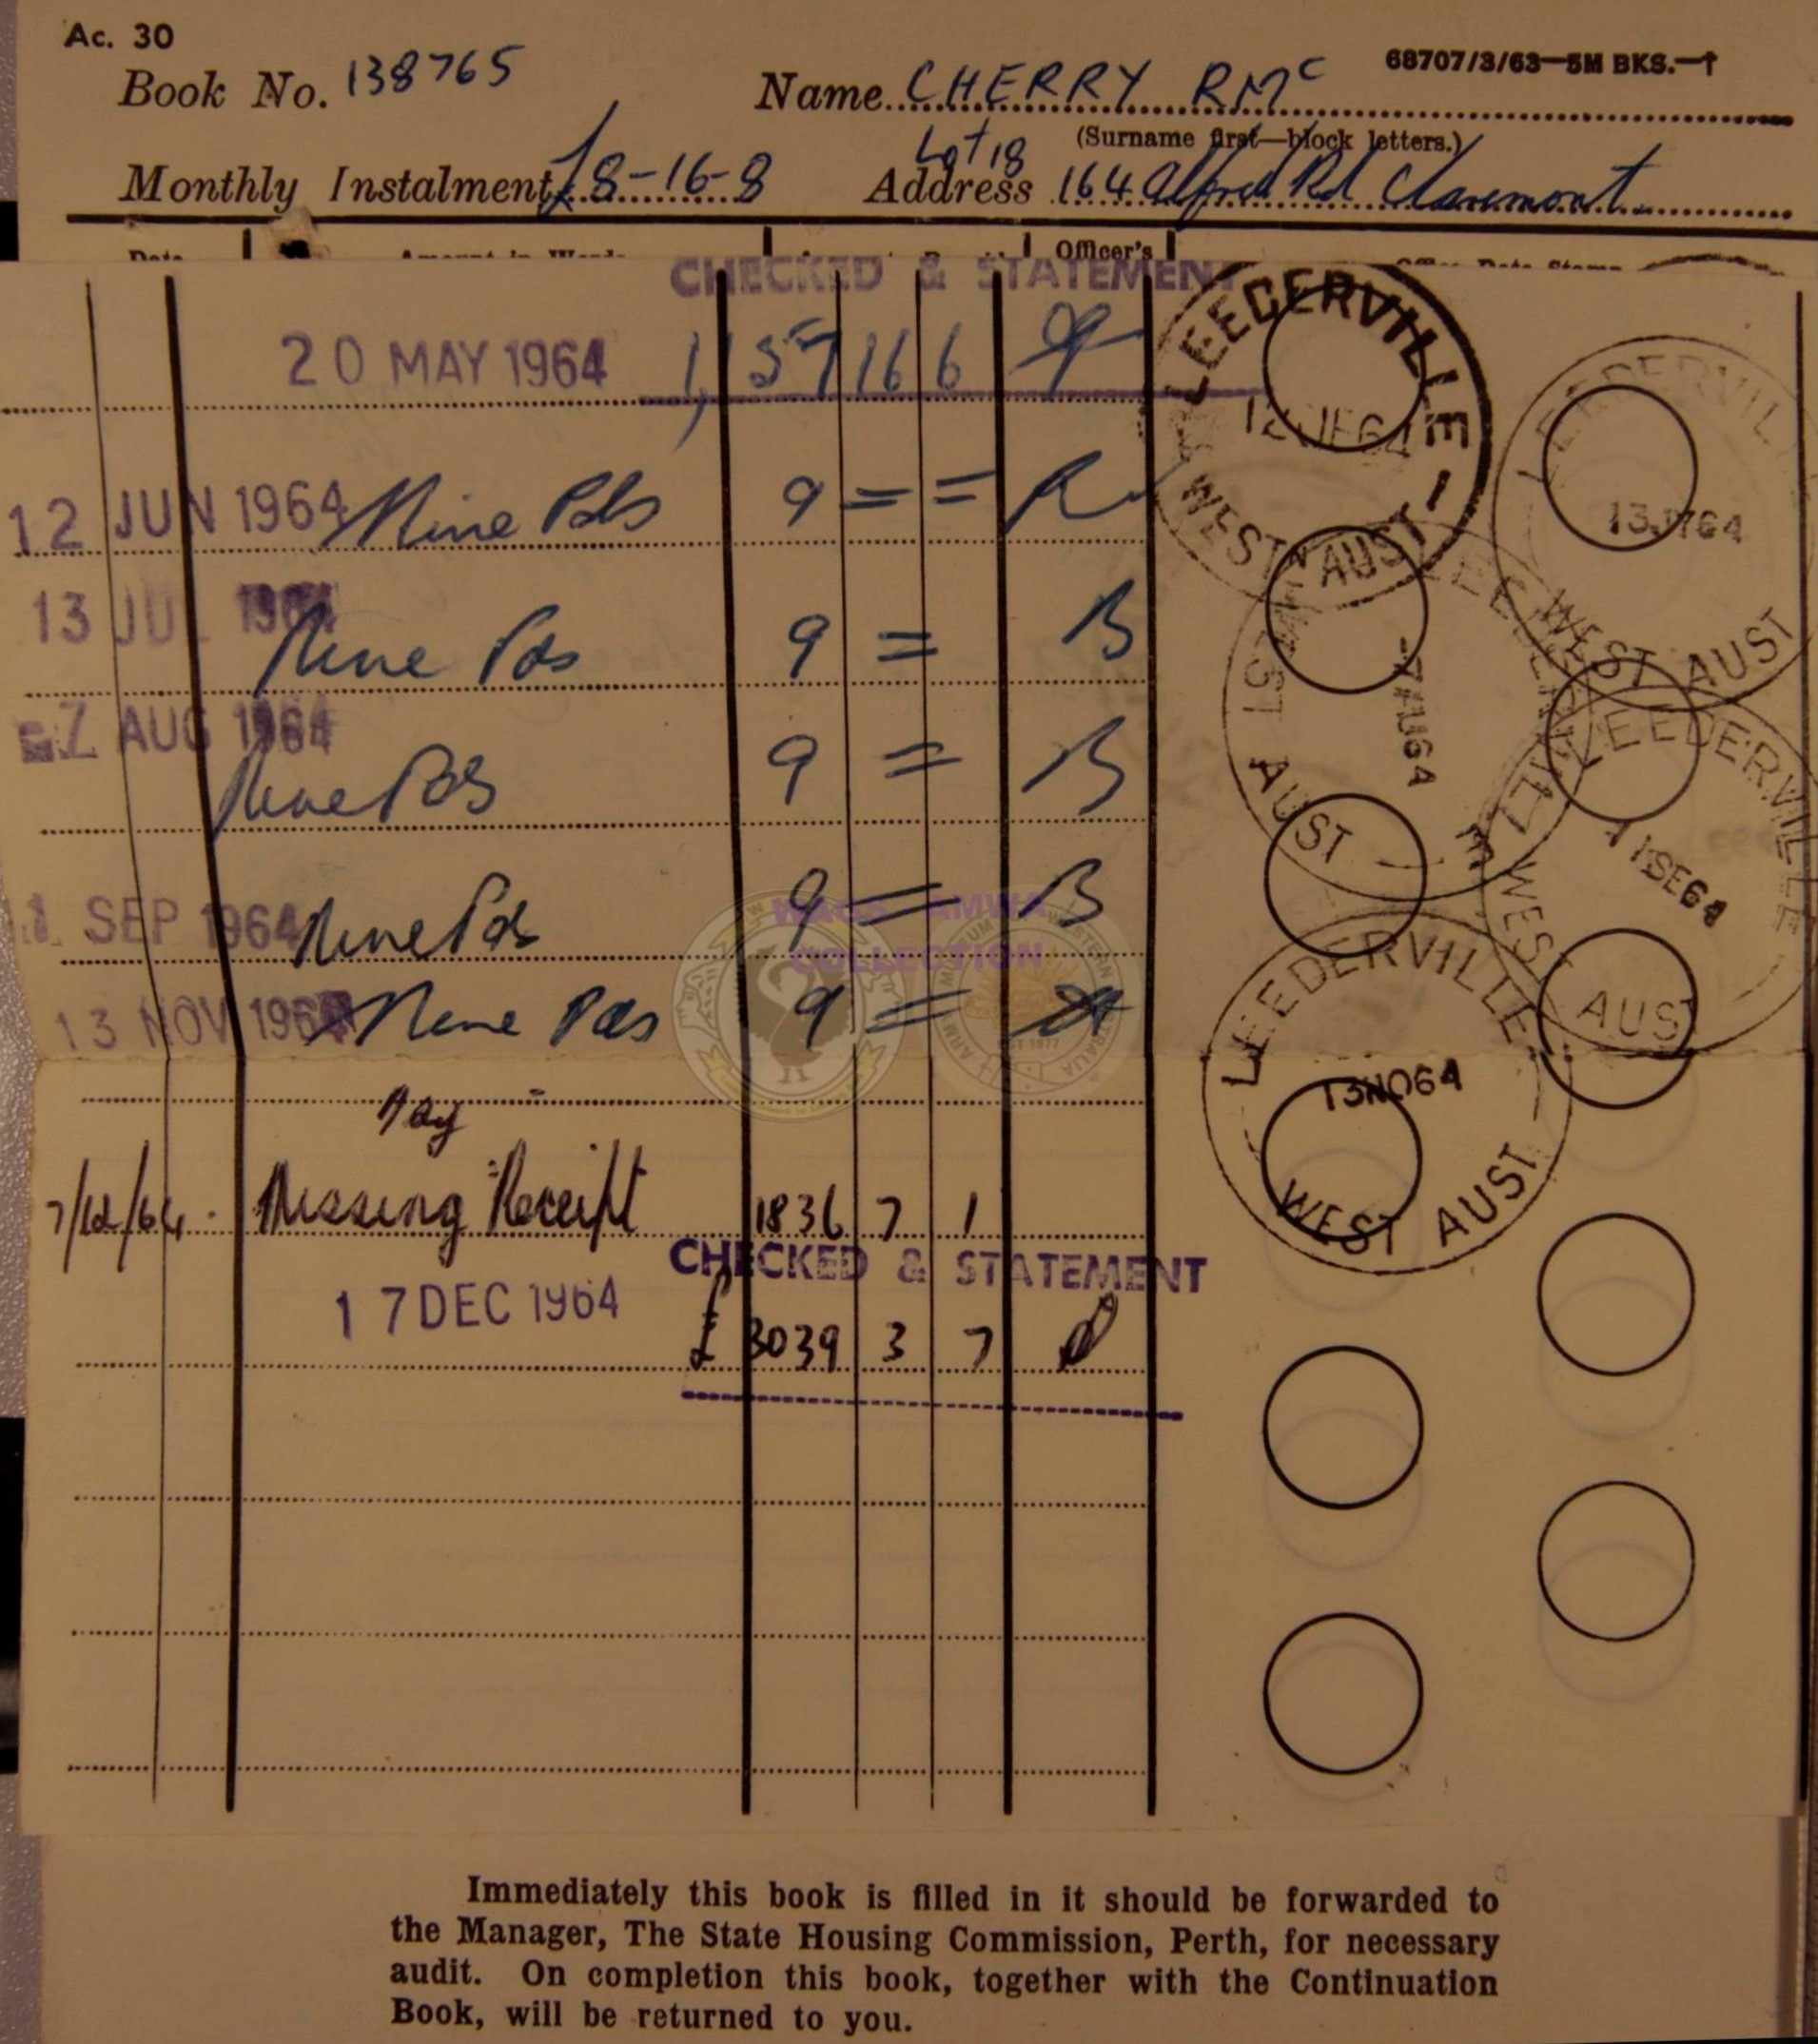 Ac. 30
68707/3/63—5M BKS.—↑
Book No. 138765 Name CHERRY R Mc
(Surname first—block letters.)
Lot 18
Monthly Instalment £8-16-8 Address 164 Alfred Rd Claremont
Officer's
CHECKED & STATEMENT
20 MAY 1964 1,157 16 6
LEEDERVILLE 1
12 JE 64
WEST AUST
LEEDERVIL
13 JY 64
WEST AUST
12 JUN 1964 Nine Pds 9 = = R
13 JUL 1964 Nine Pds 9 = B
-7 AUG 1964 Nine Pds 9 = B
-7 AU 64
WEST AUST
LEEDERVILLE
11 SE 64
WEST AUST
1 SEP 1964 Nine Pds 9 = B
WAGS AMWA
COLLECTION
13 NOV 1964 Nine Pds 9 =
LEEDERVILLE
13 NO 64
WEST AUST
7/12/64 Missing Receipt 1836 7 1
CHECKED & STATEMENT
17 DEC 1964 £ 3039 3 7
Immediately this book is filled in it should be forwarded to
the Manager, The State Housing Commission, Perth, for necessary
audit. On completion this book, together with the Continuation
Book, will be returned to you.